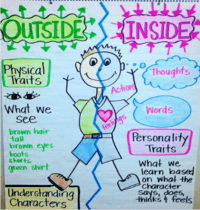 OUTSIDE
INSIDE
Physical
Traits
What we
see
brown hair
tall
brown eyes
boots
shorts
green shirt
Understanding
Characters
Thoughts
Actions
Words
feelings
Personality
Traits
What we
learn based
on what the
character
says, does,
thinks & feels